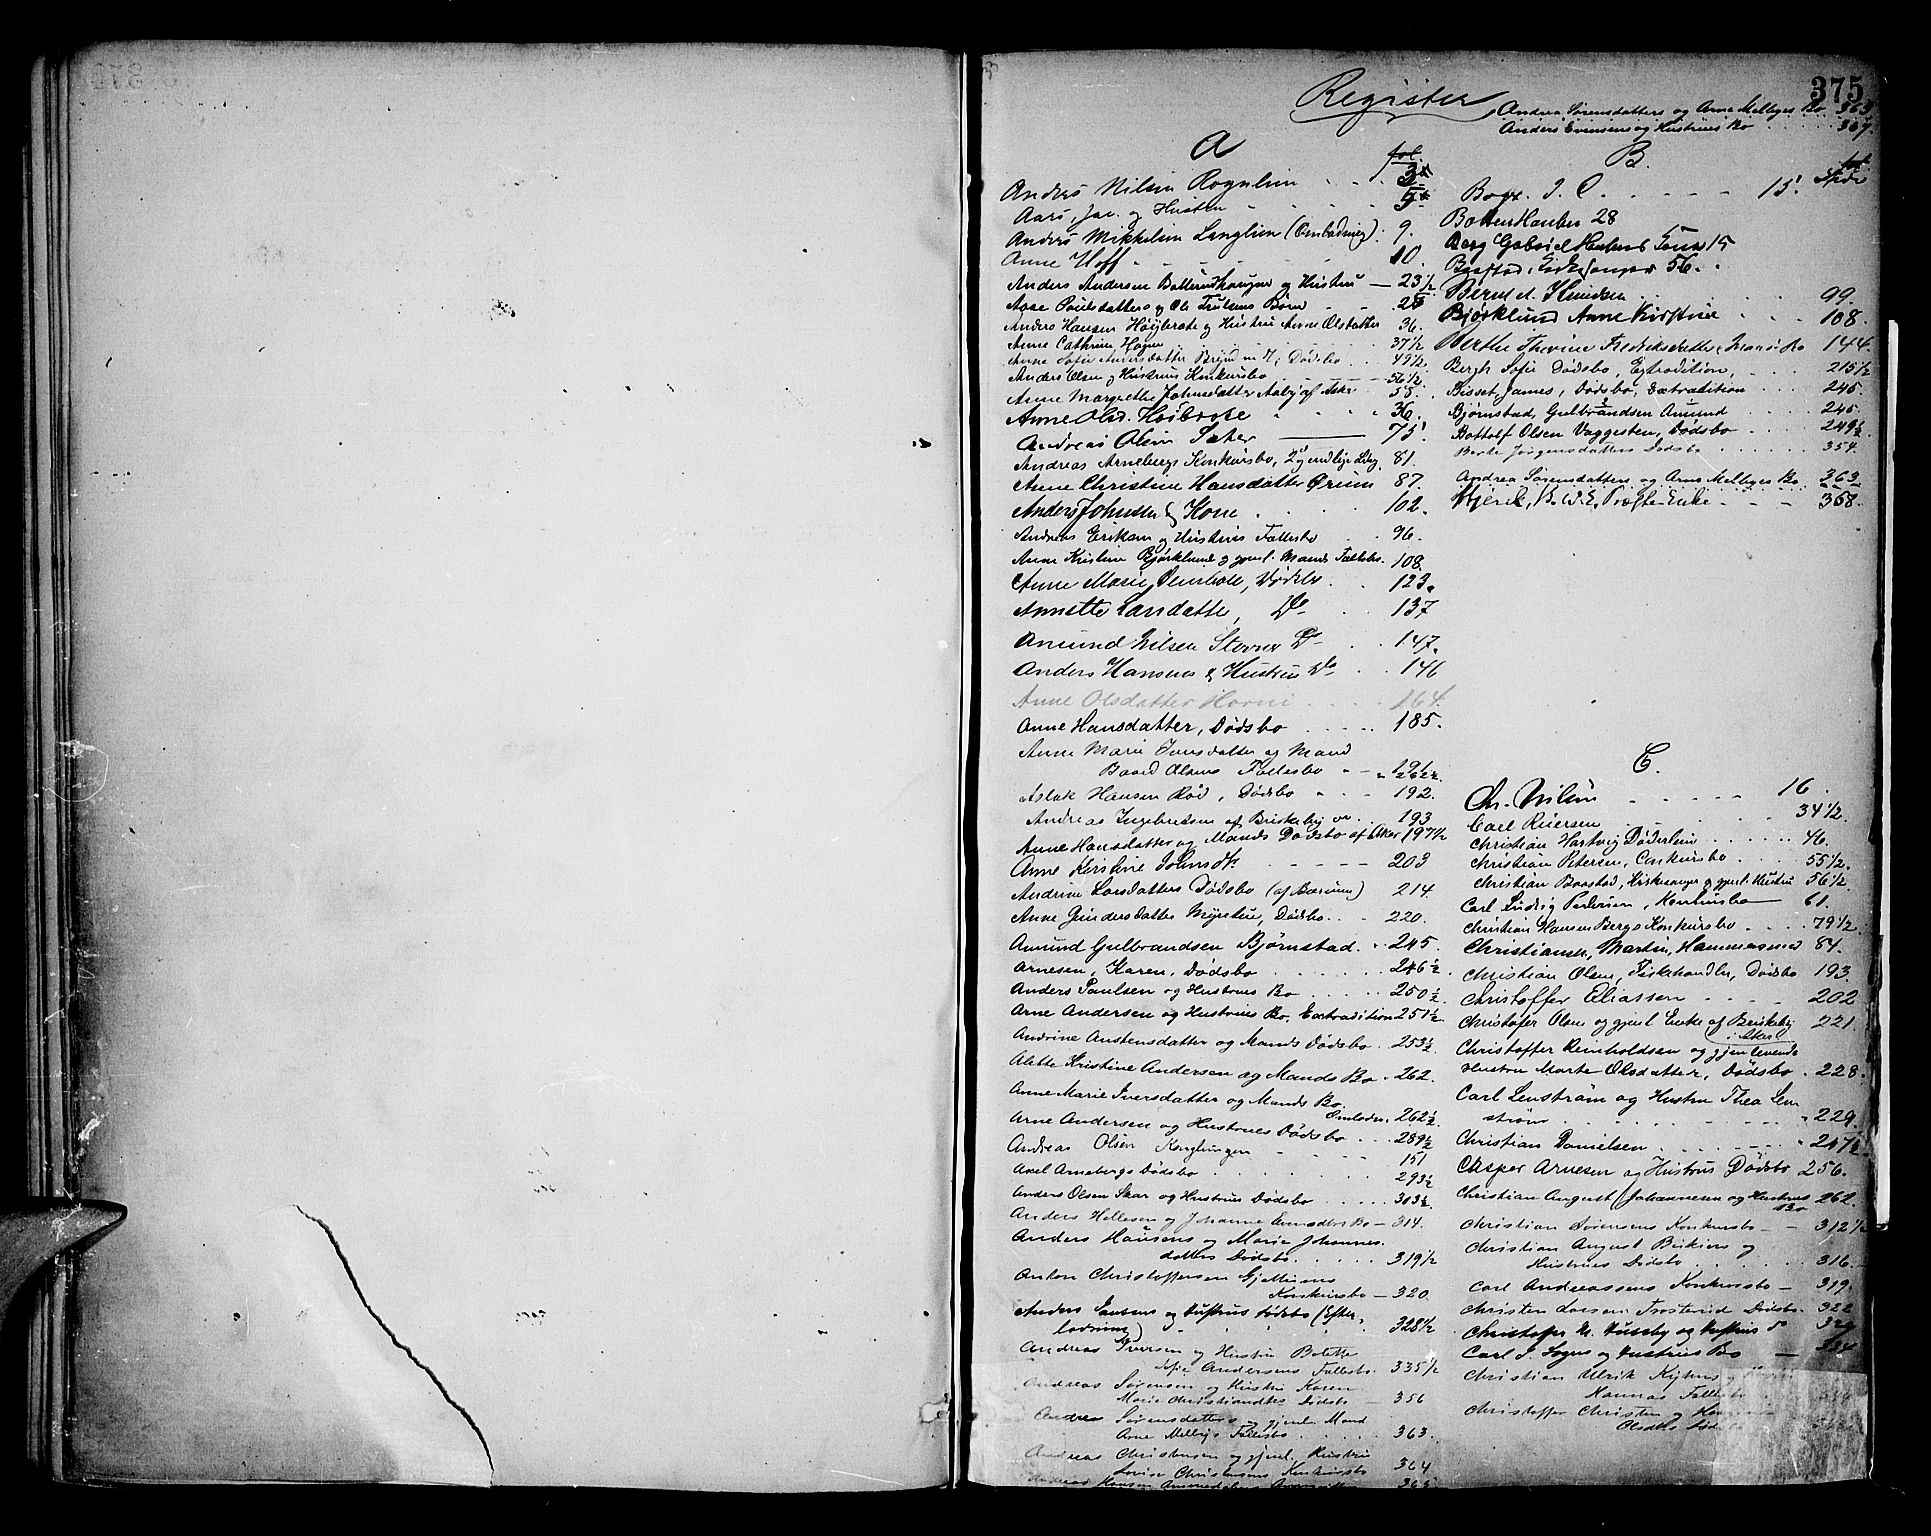 375
Register
Andrea Sørensdatters og Arne Melbyes Bo 363
Anders Evensens og Hustrues Bo 367
A
fol.
Anders Nilsen Rognlien 3
Aars, Jac. og Hustru 5
Anders Mikkelsen Langlien 9.
Anne Hoff 10.
Anders Andersen Ballerudhaugen og Hustru 23 1/2
Aase Poulsdatters og Ole Trulsens Børn 28
Anders Hansen Høybraate og Hustru Anne Olsdatter 36.
Anne Cathrine Hagen 37 1/2
Anne Sofie Andersdatter Dødsbo 49 1/2
Anders Olsen og Hustrues Konkursbo 56 1/2
Anne Margrethe Johnsdatter Aaby af Asker 55.
Anne Olsd. Høibraate 36.
Andreas Olsen Sæter 75.
Andreas Arnebergs Konkursbo, 81.
Anne Christine Hansdatter Ørum 87.
Anders Johnsen & Kone 102.
Andreas Eriksen og Hustrues Fællesbo 96.
Anne Kristine Bjørklund og gjenl. Mands Fællesbo. 108.
Anne Marie Dødsbo 123.
Annette Larsdatter, Do 137
Amund Nilsen Stovner Do 147.
Anders Hansens & Hustrus Do 146
Anne Olsdatter Horni 164.
Anne Hansdatter, Dødsbo 185.
Anne Marie Iversdatter og Mand
Baard Olsens Fællesbo 191
Aslak Hansen Rød, Dødsbo 192.
Andreas Ingebretsen af Briskeby 193
Anne Hansdatter og Mands Dødsbo af Aker 197 1/2
Anne Kirstine Johnsdt. 203
Andrine Larsdatters Dødsbo (af Bærum) 214.
Anne Gundersdatter Myrstue, Dødsbo. 220.
Amund Gulbrandsen Bjørnstad. 245.
Arnesen, Karen, Dødsbo 246 1/2
Anders Paulsen og Hustrues Bo 250 1/2
Arne Andersen og Hustrues Bo, Extradition 251 1/2
Andrine Austensdatter og Mands Dødsbo. 253 1/2
Alette Kristine Andersen og Mands Bo 262.
Anne Marie Iversdatter og Mands Bo
Omloden. 262 1/2
Arne Andersen og Hustrues Dødsbo 289 1/2
Andreas Olsen Kenglungen 151
Axel Arnebergs Dødsbo 293 1/2
Anders Olsen Skar og Hustrues Dødsbo 303 1/2
Anders Hellesen og Johanne Evensdtrs Bo 314.
Anders Hansens og Marie Johannes-
datters Dødsbo 319 1/2
Anton Christoffersen Gjettums
Konkursbo 320.
Anders Hansens og Hustrus Dødsbo (Efter-
lodning) 328 1/2
Andreas Iversen og Hustru Bolette
Sofie Andersens Fællesbo 335 1/2
Andreas Sørensen og Hustru Karen
Marie Christiansdtrs Dødsbo 356
Andrea Sørensdatters og gjenl. Mand
Arne Melbys Fællesbo 363.
Andreas Christensen og gjenl. Hustru
Lovise Christensens Konkursbo 364
Andreas Hansen
B.
fol.
Side
Boye. I. C. 15.
Botten Hansen 28
Berg Gabriel 15
Baastad, Kirkesanger 56.
Bernt A. Knudsen 99.
Bjørklund Anne Kirstine 108.
Berthe Thorine Fredriksdatter Mands Bo 144.
Bergh Sofie Dødsbo, Extradition, 215 1/2
Bisset, James, Dødsbo, Extradition 245.
Bjørnstad, Gulbrandsen Amund 245.
Bottolf Olsen Vaggesten, Dødsbo 249 1/2
Berte Jørgensdatters Dødsbo 354.
Andrea Sørensdatters og Arne Melbyes Bo. 363
Bjerck, B. W. E. Præste-Enke 368.
C.
Chr. Nilsen 16.
Carl Riiersen 34 1/2
Christian Hartvig Døderlein 46.
Christian Petersen, Conkursbo 55 1/2.
Christian Baastad, Kirkesanger og gjenl. Hustru 56 1/2
Carl Ludvig Pedersen, 61.
Christian Hansen Bergs Konkursbo 79 1/2
Christiansen, Martin, Hammersmed 84.
Christian Olsen, Fiskehandler, Dødsbo 193.
Christoffer Eliassen 202
Christoffer Olsen og gjenl Enke af Briskeby 221.
i Aker
Christoffer Reinholdsen og gjenlevende
Hustru Marte Olsdatter, Dødsbo 228.
Carl Lenstrøm og Hustru Thea Len-
strøm 229.
Christian Danielsen 247 1/2
Casper Arnesen og Hustrus Dødsbo 256.
Christian August Johannesen og Hustrues 262.
Bo
Christian Sørensens Konkursbo 312 1/2
Christian August Birkins og
Hustrues Dødsbo 316.
Carl Andreassens Konkursbo 319.
Christen Larsen Trosterud Dødsbo. 322
Christoffer N. Huseby og Hustrus do
Carl J. Sognes og Hustrus Bo 334
Christian Ulrik
Hannas Fællesbo
Christoffer Christen og
Olsdtrs Dødsbo